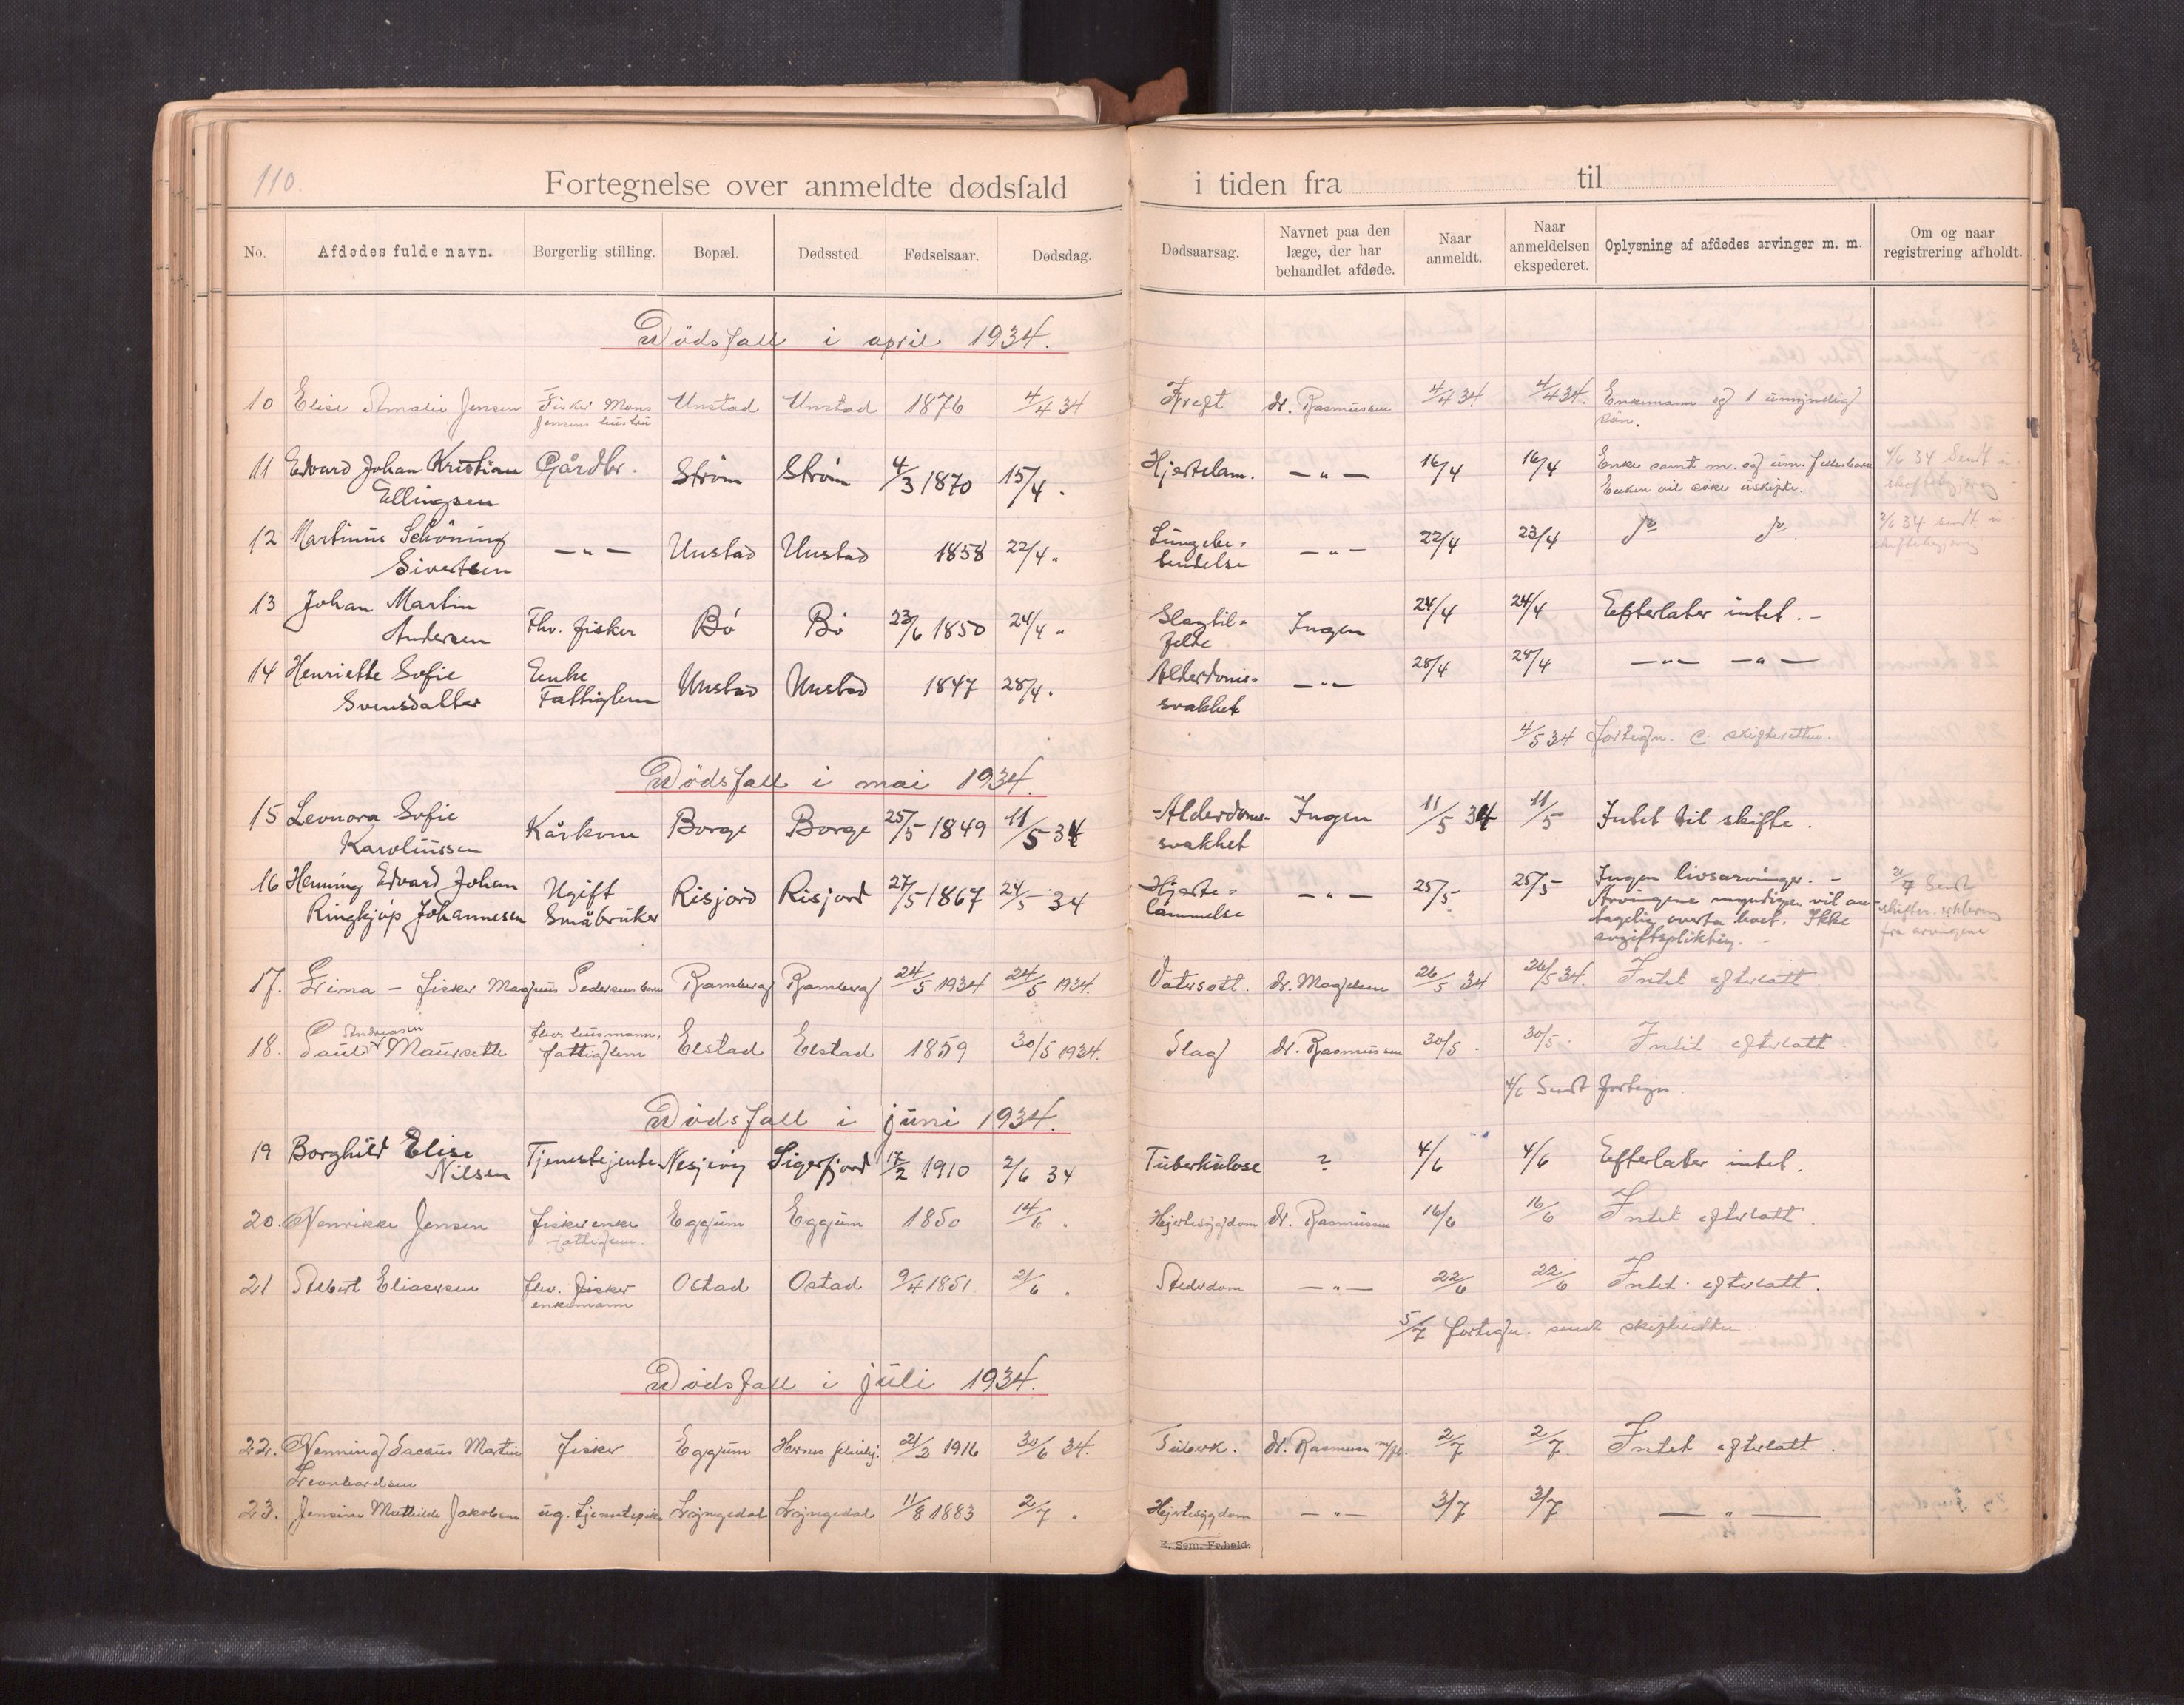 110.
Fortegnelse over anmeldte dødsfald i tiden fra til
No. Afdødes fulde navn. Borgerlig stilling. Bopæl. Dødssted. Fødselsaar. Dødsdag. Dødsaarsag. Navnet paa den læge, der har behandlet afdøde. Naar anmeldt. Naar anmeldelsen ekspederet. Oplysning af afdødes arvinger m. m. Om og naar registrering afholdt.
Dødsfall i april 1934.
10 Elise Amalie Jensen Fisker Mons Jensens hustru Unstad Unstad 1876 4/4 34 Kreft dr. Rasmussen 4/4 34. 4/4 34. Enkemann og 1 umyndig søn.
11 Edvard Johan Kristian Ellingsen Gårdbr. Strøm Strøm 4/3 1870 15/4 . Hjertelam. — " — 16/4 16/4 Enke samt m. og um. fellesbarn Enken vil søke uskifte. 4/6 34 Sendt
12 Martinus Schöning Sivertsen — " — Unstad Unstad 1858 22/4 " Lungebe- tendelse — " — 22/4 23/4 Do Do. 2/6 34 sendt
13 Johan Martin Andersen Fhv. fisker Bø Bø 23/6 1850 24/4 " Slagtil- felde Ingen 24/4 24/4 Efterlater intet. -
14 Henriette Sofie Svensdatter Enke Fattiglem Unstad Unstad 1847 28/4 . Alderdoms- svakhet — " — 28/4 28/4 — " — — " —
4/5 34 fortegn. skifteretten.
Dødsfall i mai 1934.
15 Leonora Sofie Karoliussen Kårkone Borge Borge 25/5 1849 11/5 34 Alderdoms- svakhet Ingen 11/5 34 11/5 Intet til skifte.
16 Henning Edvard Johan Ringkjøp Johannesen Ugift Småbruker Risjord Risjord 27/5 1867 24/5 34 Hjerte- lammelse — " — 25/5 25/5 Ingen livsarvinger. - Arvingene myndige. vil an- tagelig overta boet. Ikke avgiftspliktig. - 21/7 Sendt skifter. erklæring fra arvingene
17. Lina - fisker Magnus Pedersens barn Ramberg Ramberg 24/5 1934 24/5 1934. Vatersott. dr. Magelsen 26/5 34 26/5 34. Intet efterlatt
18. Paul Andreasen Maurseth fhv. husmann, fattiglem Elstad Elstad 1859 30/5 1934. Slag dr. Rasmussen 30/5 . 30/5 . Intet efterlatt.
4/6 Sendt fortegn.
Dødsfall i juni 1934.
19 Borghild Elise Nilsen Tjenestejente Nesjevig Sigerfjord 17/2 1910 2/6 34 Tuberkulose ? 4/6 4/6 Efterlater intet.
20. Henrikke Jensen fiskerenke fattiglem. Eggum Eggum 1850 14/6 " Hjertesygdom dr. Rasmussen 16/6 16/6 Intet efterlatt.
21 Albert Eliassen fhv. fisker enkemann Ostad Ostad 9/4 1851 21/6 " Alderdom — " — 22/6 22/6 Intet efterlatt.
5/7 fortegn. sendt skifteretten
Dødsfall i juli 1934.
22. Henning Martin Leonhardsen fisker Eggum 21/3 1916 30/6 34. Tuberk. dr. Rasmussen 2/7 2/7. Intet efterlatt.
23. Jensine Mathilde Jakobsen ug. tjenestepike Lyngedal Lyngedal 11/8 1883 2/7 " Hjertesygdom — " — 3/7 3/7 — " —
E. Sem. Fr.hald.